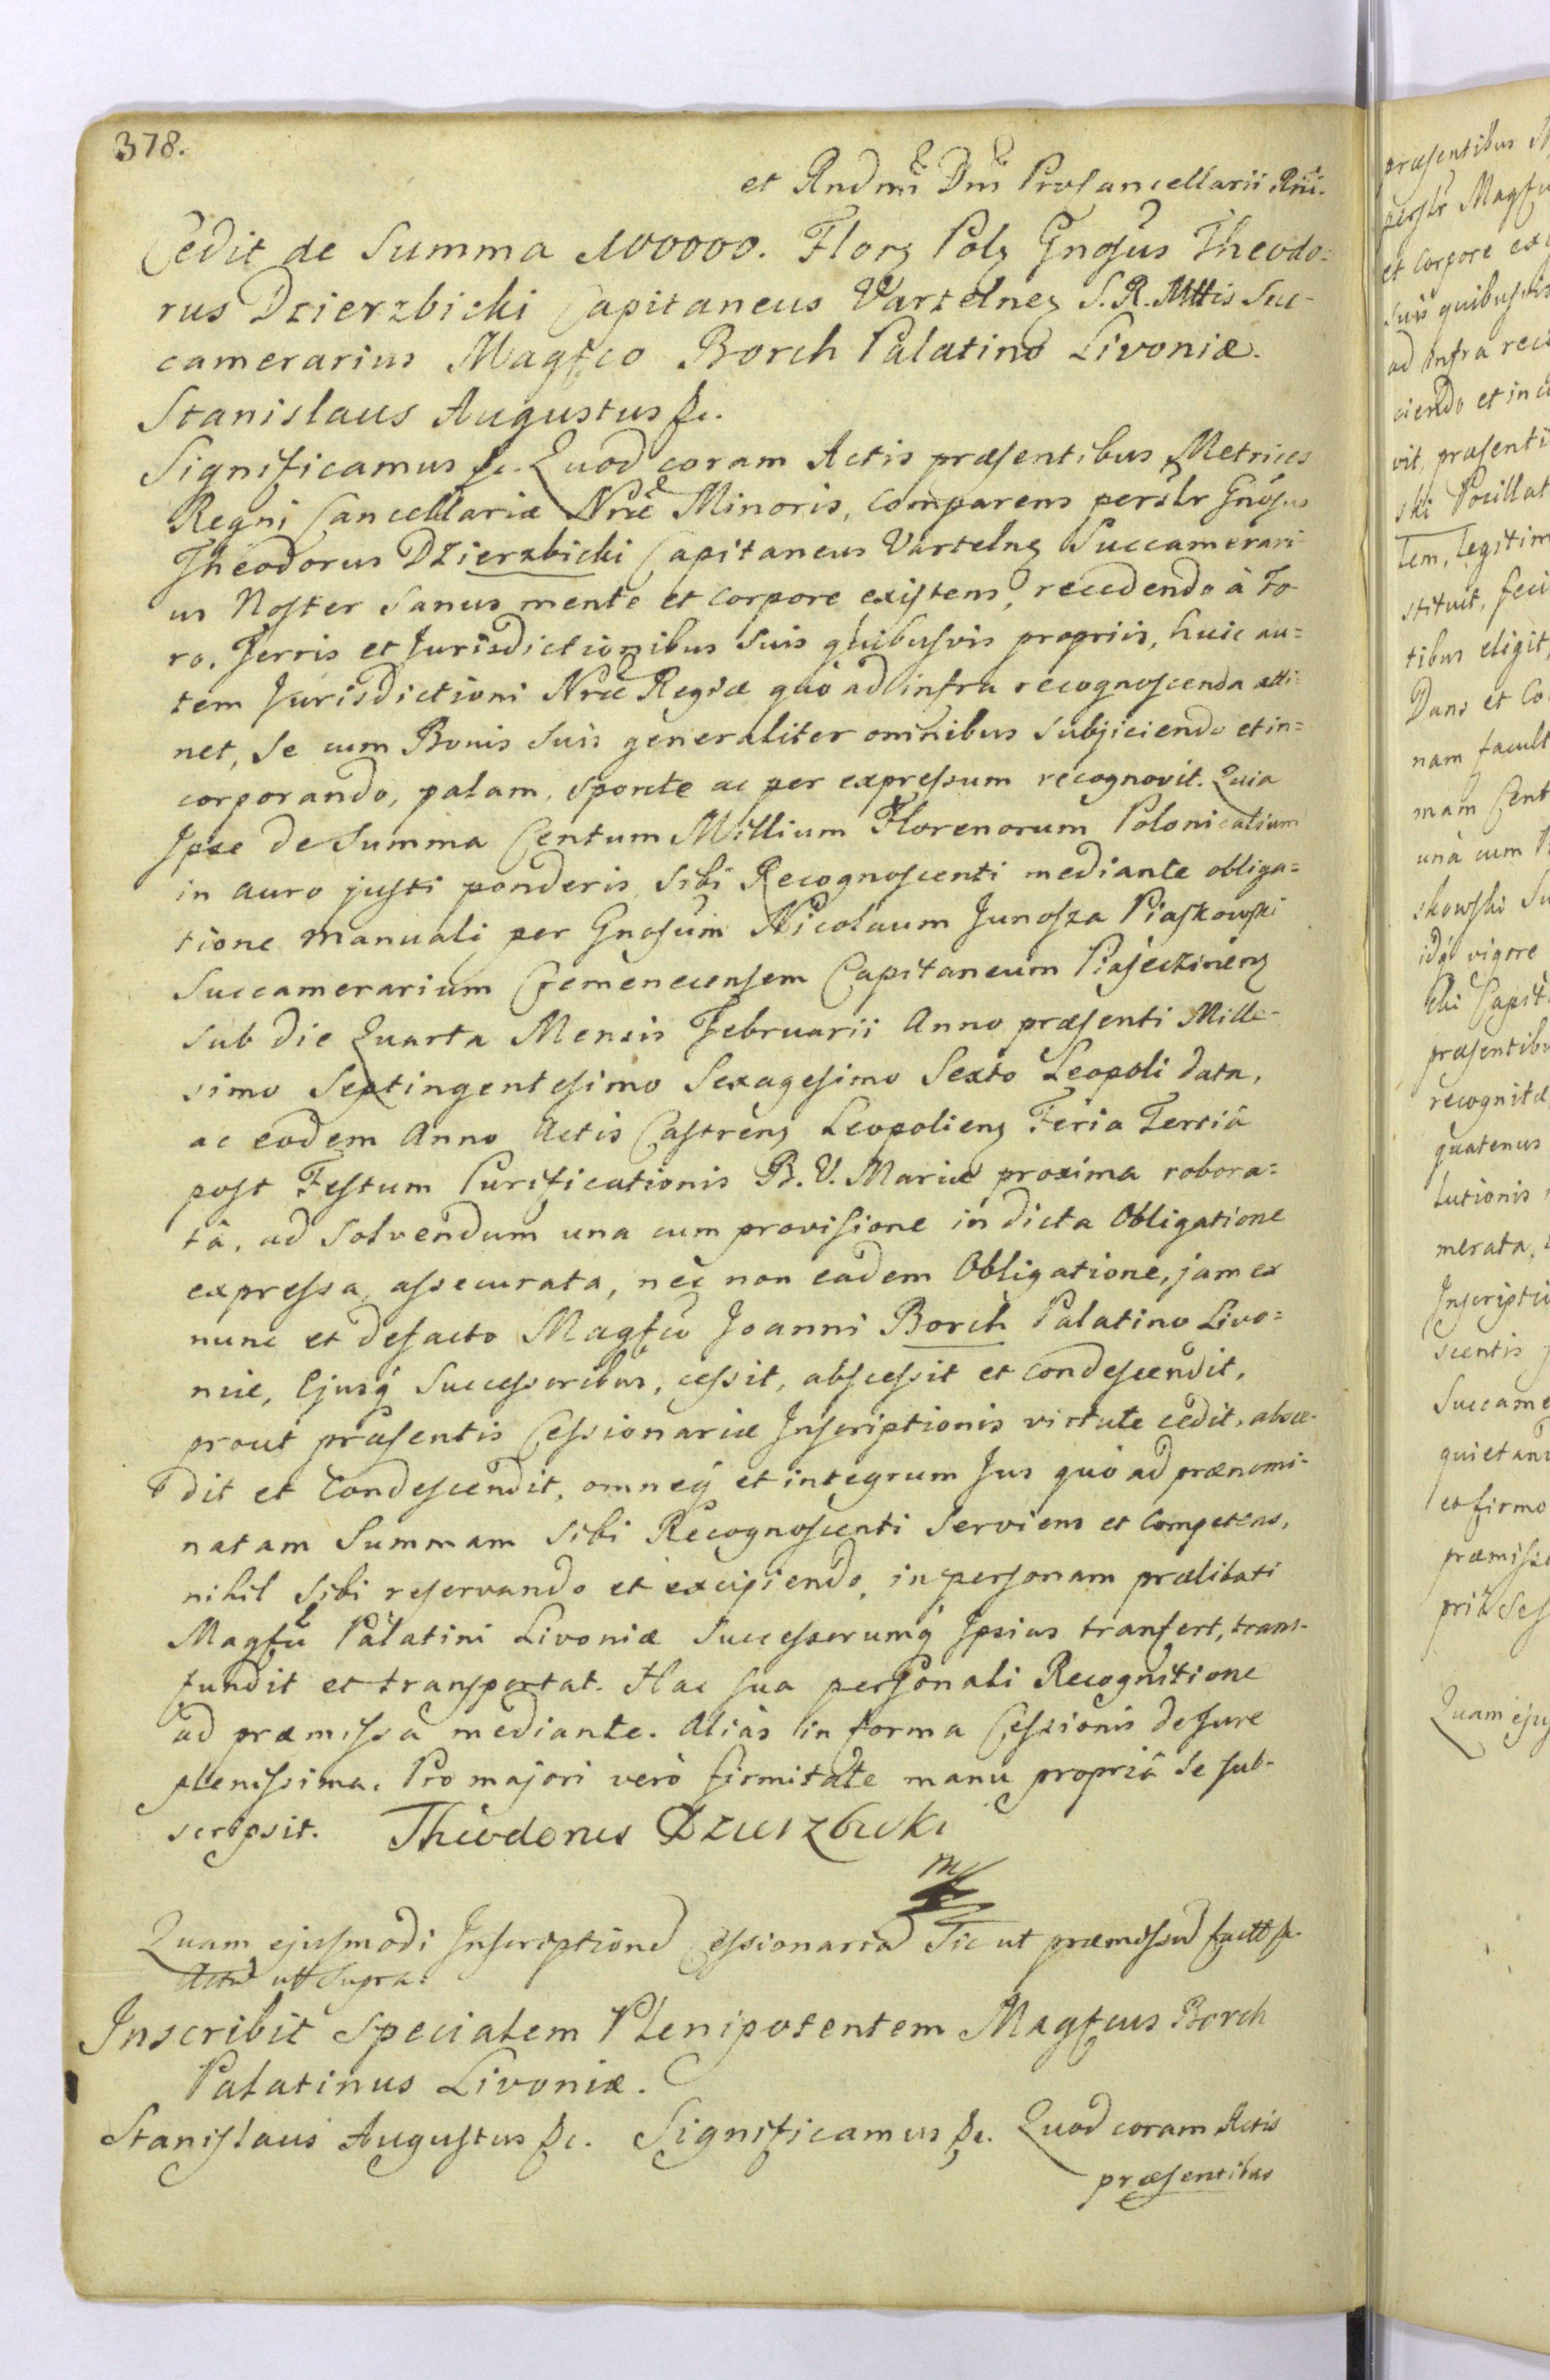 378.
et Rndmi Dni Procancellarii Rni.
Cedit de Summa 100000. Florz Polz Gnosus Theodo=
rus Dzierzbicki Capitaneus Vartelnez S. R. Mttis Suc-
camerarius Magfco Borch Palatino Livoniæ.
Stanislaus Augustus &c.
Significamus &c. Quod coram Actis præsentibus Metrices
Regni Cancellariæ Nræ Minoris, comparens perslr Gnosus
Theodorus Dzierzbicki Capitaneus Vartelnz Succamerari-
us Noster sanus mente et corpore existens, recedendo à Fo
ro, Terris et Jurisdictionibus suis quibusvis propriis, huic au=
tem Jurisdictioni Nræ Regiæ quò ad infra recognoscenda atti=
net, se cum Bonis suis generaliter omnibus subjiciendo et in=
corporando, palam, sponte ac per expressum recognovit. Quia
Ipse de Summa Centum Millium Florenorum Polonicalium
in auro justi ponderis sibi Recognoscenti mediante obliga=
tione manuali per Gnosum Nicolaum Junosza Piaskowski
Succamerarium Cremenecensem Capitaneum Piasecznenz
sub die Quarta Mensis Februarii Anno præsenti Mille-
simo Septingentesimo Sexagesimo Sexto Leopoli data,
ac eodem Anno Actis Castrenz Leopolienz Feria Tertiâ
post Festum Purificationis B. V. Mariæ proxima robora=
tâ, ad solvendum una cum provisione in dicta Obligatione
expressa, assecurata, nec non eadem Obligatione, jam ex
nunc et defacto Magfco Joanni Borch Palatino Livo=
niæ, Ejusq́ Successoribus, cessit, abscessit et condescendit,
prout præsentis Cessionariæ Inscriptionis virtute cedit, absce-
dit et Condescendit, omneq́ et integrum Jus quò ad prænomi-
natam Summam sibi Recognoscenti serviens et competens,
nihil sibi reservando et excipiendo, in personam prælibati
Magfci Palatini Livoniæ Successorumq́ Ipsius tranfert, trans-
fundit et transportat. Hac sua personali Recognitione
ad præmissa mediante. Aliàs in forma Cessionis de Jure
plenissima. Pro majori verò firmitate manu propriâ se sub-
scripsit. Theodorus Dzierzbicki
mp
Quam ejusmodi Inscriptione Cessionaria Sic ut præmissu factt &c.
Actu utt Supra.
Inscribit Specialem Plenipotentem Magfcus Borch
Palatinus Livoniæ.
Stanislaus Augustus &c. Significamus &c. Quod coram Actis
præsentibus
præsentibus
perslr Magfcus
et corpore
suis quibusvis
ad infra
ciendo et in
vit, præsenti
ski Pocillat
lem, legitim
stituit, feci
tibus eligit,
Dans et Co
nam facult
mam Cent
unà cum
skowski Su
idq́ vigore
cki Capit
præsentibu
recognitæ
quatenus
lutionis
merata,
Inscripti
scentis
Succame
quietan
et firmo
præmissa
priâ se s
Quam ejus